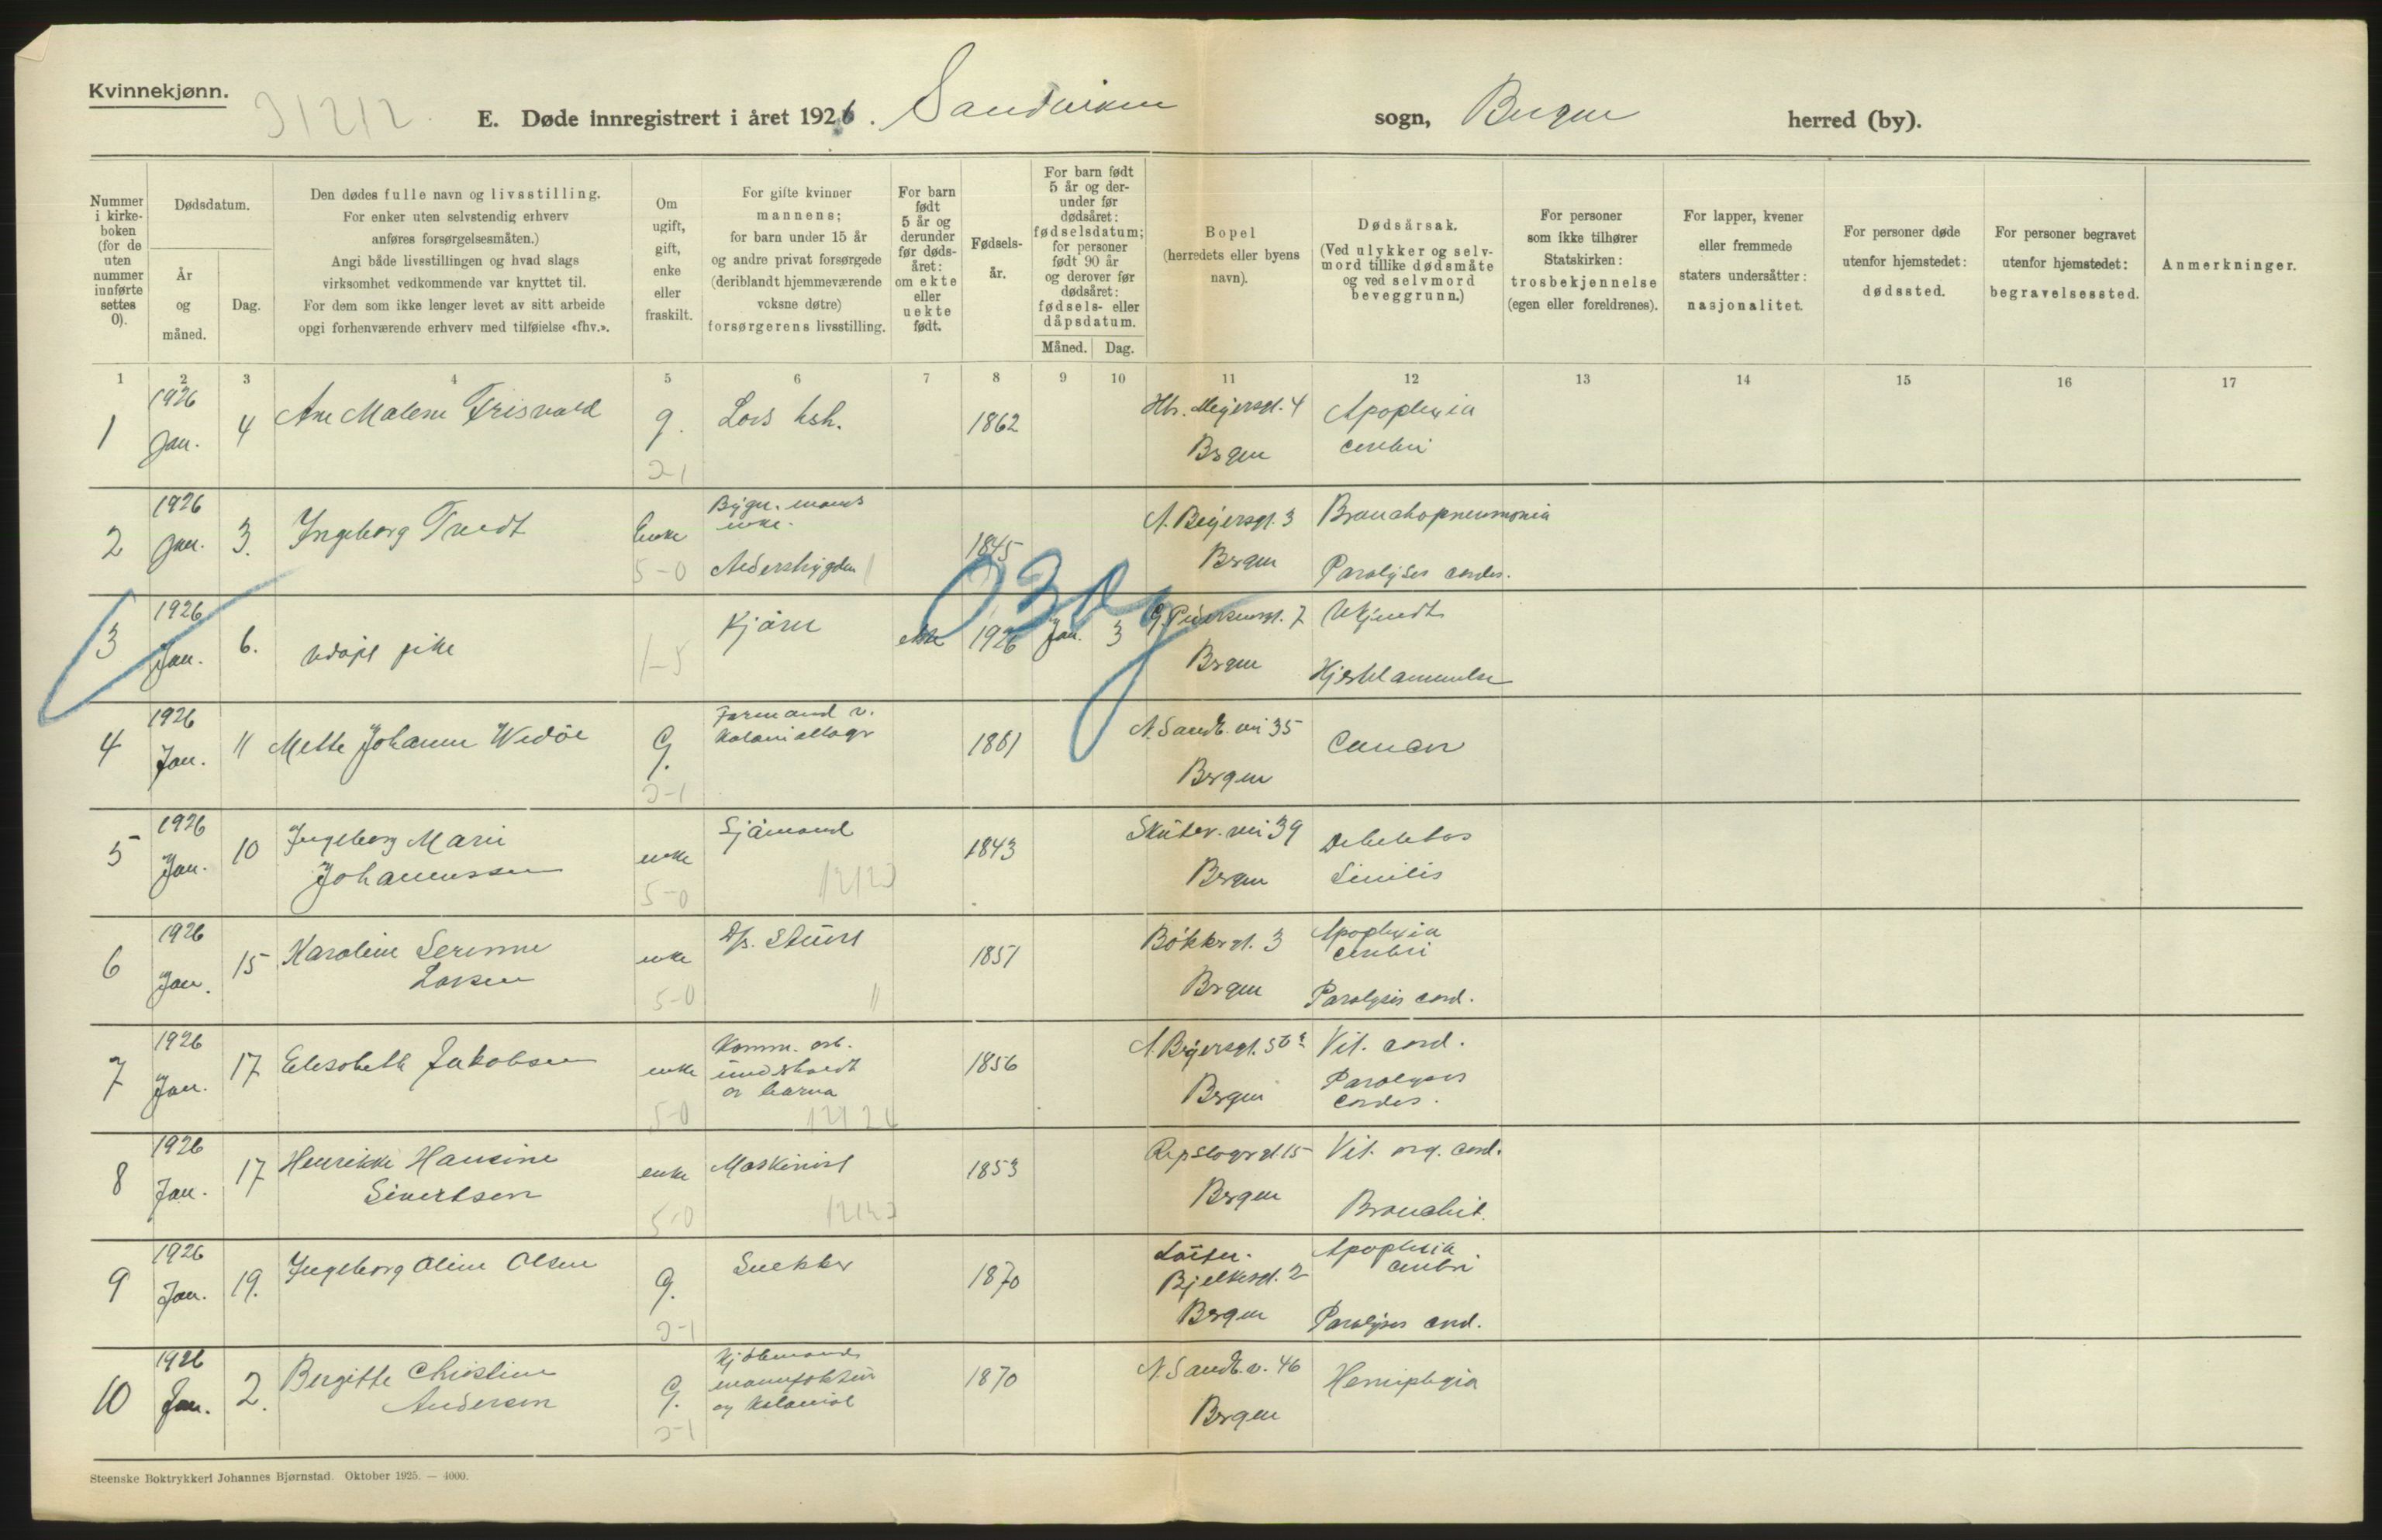 Kvinnekjønn.
E. Døde innregistrert i året 1926. Sandviken sogn, Bergen herred (by).
Nummer i kirkeboken (for de uten nummer innførte settes 0).
Dødsdatum.
År og måned.
Dag.
Den dødes fulle navn og livsstilling.
For enker uten selvstendig erhverv
anføres forsørgelsesmåten.)
Angi både livsstillingen og hvad slags
virksomhet vedkommende var knyttet til.
For dem som ikke lenger levet av sitt arbeide
opgi forhenværende erhverv med tilføielse «fhv.».
Om ugift, gift, enke eller fraskilt.
For gifte kvinner
mannens;
for barn under 15 år
og andre privat forsørgede
(deriblandt hjemmeværende
voksne døtre)
forsørgerens livsstilling.
For barn født 5 år og derunder før dødsåret: om ekte eller uekte født.
Fødsels-år.
For barn født 5 år og derunder før dødsåret: fødselsdatum; for personer født 90 år og derover før dødsåret: fødsels- eller dåpsdatum.
Måned. Dag.
Bopel
(herredets eller byens
navn).
Dødsårsak.
(Ved ulykker og selv-
mord tillike dødsmåte
og ved selvmord
beveggrunn.)
For personer
som ikke tilhører
Statskirken:
trosbekjennelse
(egen eller foreldrenes).
For lapper, kvener
eller fremmede
staters undersåtter:
nasjonalitet.
For personer døde
utenfor hjemstedet:
dødssted.
For personer begravet
utenfor hjemstedet:
begravelsessted.
Anmerkninger.
1 2 3 4 5 6 7 8 9 10 11 12 13 14 15 16 17
1 1926 Jan. 4 Ane Malene Frisvold g. Los hsh. 1862 Hh. Meyersgt. 4 Bergen Apoplexia cerebri
2-1
2 1926 Jan. 3. Ingeborg Tvedt Enke enke. 1845 N. Beyersgt. 3 Bergen Bronchopneumonia Paralysis cordis.
5-0
3 1926 Jan. 6. udøpt pike ekte 1926 Jan. 3 Bergen Ukjendt Hjertelammelse
1-5
4 1926 Jan. 11 Mette Johanne Wedøe G. Formand v. Koloniallager 1861 N. Sandv. vei 35 Bergen Cancer
2-1
5 1926 Jan. 10 Ingeborg Marie Johannessen enke Sjømand 1843 Skutev. vei 39 Bergen Debilitas Senilis
5-0
6 1926 Jan. 15 Karoline Serine Larsen enke D/s. Stuert 1851 Bøkkergt. 3 Bergen Apoplexia cerebri Paralysis cord.
5-0
7 1926 Jan. 17 Elisabeth Jakobsen enke Komm. arb. underholdt av barna 1856 N. Beyersgt. Bergen Vit. cord. Paralysis cordis.
5-0
8 1926 Jan. 17 Henrikke Hansine Sivertsen enke Maskinist 1853 Repslagergt. 15 Bergen Vit. org. cord. Bronchit.
5-0
9 1926 Jan. 19. Ingeborg Oline Olsen G. Snekker 1870 Bjelkesgt. 2 Bergen Apoplexia cerebri Paralysis cord.
2-1
10 1926 Jan. 2. Birgitte Christine Andersen G. Kjøbmand manufaktur og kolonial 1870 N. Sandv. v. 46 Bergen Hemiplegia
2-1
Steenske Boktrykkeri Johannes Bjørnstad. Oktober 1925. — 4000.